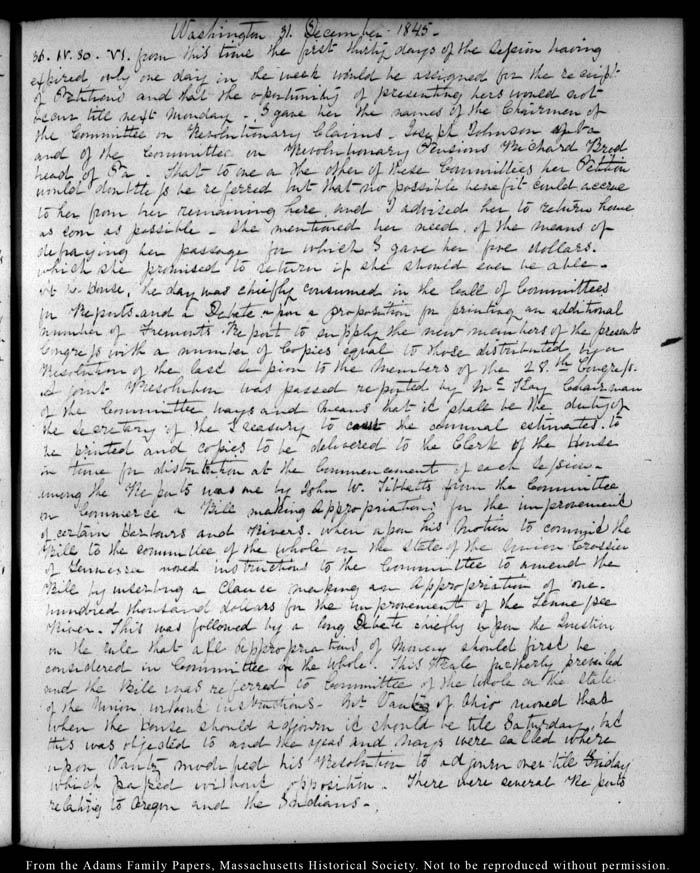 Washington 31. December 1845.
36. IV. 30. VI. from this time the first thirty days of the Session having
expired only one day in the week would be assigned for the receipt
of Petitions and that the oportunity of presenting hers would not
occur till next Monday. I gave her the names of the Chairmen of
the Committee on Revolutionary Claims. Joseph Johnson of Va
and of the Committee on Revolutionary Pensions Richard Brod
head of Pa. That to one or the other of these Committees her Petition
would doubtless be referred but that no possible benefit could accrue
to her from her remaining here, and I advised her to return home
as soon as possible. She mentioned her need of the means of
defraying her passage for which I gave her five dollars.
which she promised to return if she should ever be able.
At the House, the day was chiefly consumed in the Call of Committees
for Reports and a Debate upon a proposition for printing an additional
number of Fremonts Report to supply the new members of the present
Congress with a number of Copies equal to those distributed by a
Resolution of the last Session to the Members of the 28.th Congress.
A joint Resolution was passed reported by Mc.Kay Chairman
of the Committee ways and Means that it shall be the duty of
the Secretary of the Treasury to cause the annual estimates to
be printed and copies to be delivered to the Clerk of the House
in time for distribution at the Commencement of each Session.
among the Reports was one by John W. Tibbatts from the Committee
on Commerce a Bill making Appropriations for the improvement
of certain Harbours and Rivers. when upon his Motion to commit the
Bill to the committee of the whole on the state of the Union Crozier
of Tennessee moved instructions to the Committee to amend the
Bill by inserting a Clause making an Appropriation of one
hundred thousand dollars for the improvement of the Tennessee
River. This was followed by a long Debate chiefly upon the Question
on the rule that all Appropriations of Money should first be
considered in Committee of the whole. This Rule finally prevailed
and the Bill was referred to Committee of the whole on the state
of the Union without instructions. Mr Vance of Ohio moved that
when the House should adjourn it should be till Saturday, but
this was objected to and the yeas and Nays were called where
upon Vance modified his Resolution to adjourn over till Friday
which passed without opposition. There were several Reports
relating to Oregon and the Indians.
From the Adams Family Papers, Massachusetts Historical Society. Not to be reproduced without permission.